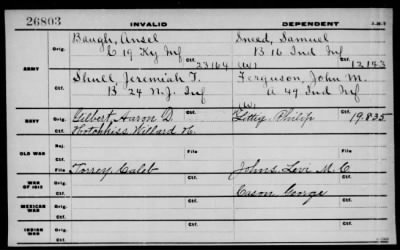 26803 INVALID DEPENDENT
ARMY Orig. Baugh, Ansel Sneed, Samuel
C 19 Ky Inf B 16 Ind Inf
Ctf. 23164 (W) 12143
Orig. Shull, Jeremiah T. Ferguson, John M.
B 24 N.J. Inf A 49 Ind Inf
Ctf. (W)
NAVY Orig. Gilbert, Aaron D. Philip 19835
Ctf. Hotchkiss, Willard H.
OLD WAR Rej.
Ctf. File File
WAR OF 1812 Orig. Torrey, Caleb Johns, Levi M. C.
Ctf. Cason, George
MEXICAN WAR Orig.
Ctf.
INDIAN WAR Orig.
Ctf.